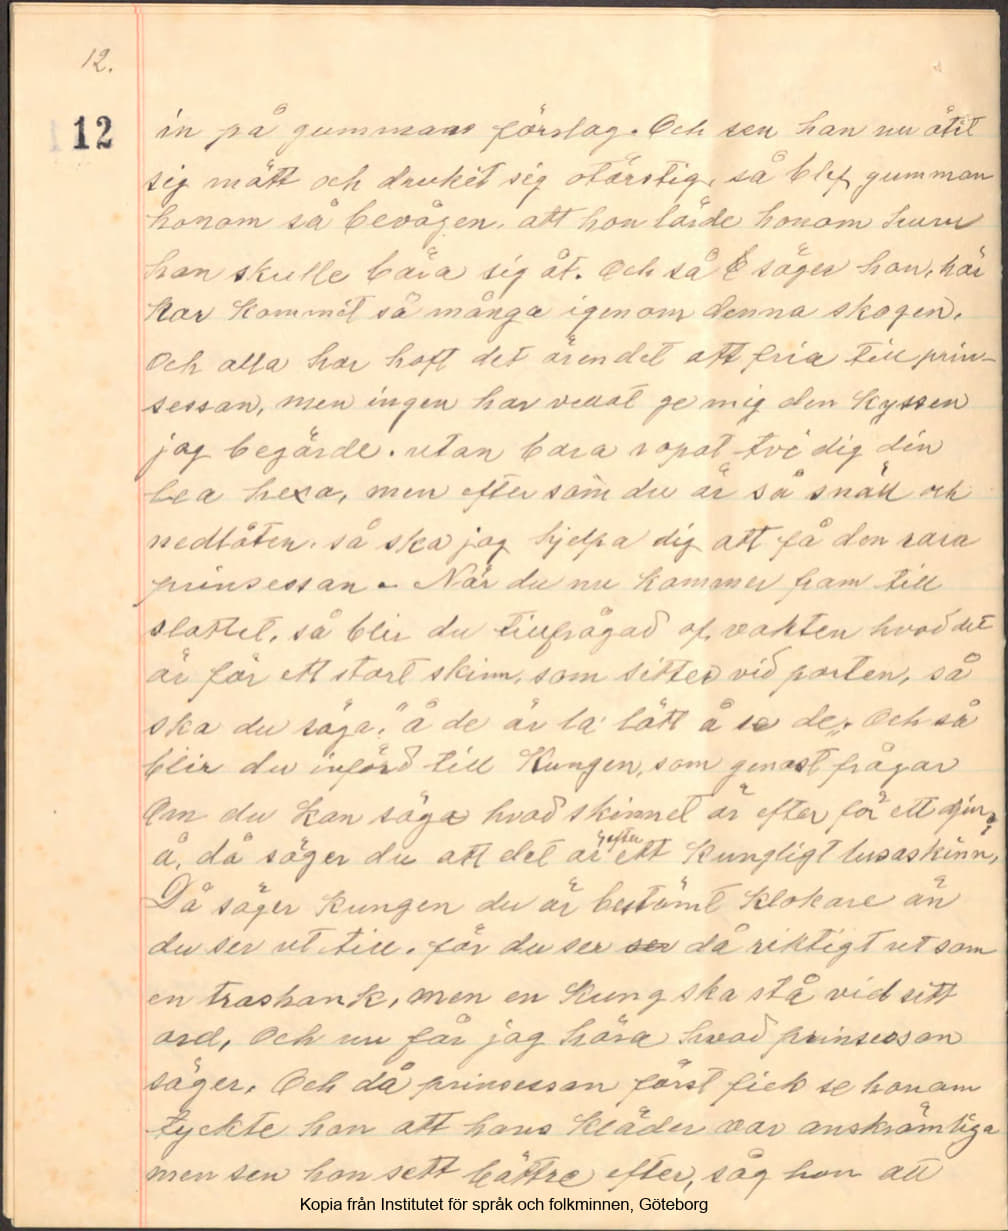 12.
12
in på gummans förslag. Och sen han nu ätit
sig mätt och druckit sig otörstig, så blef gumman
honom så bevågen, att hon lärde honom huru
han skulle bära sig åt. Och så säger hon, här
har kommit så många igenom denna skogen.
Och alla har haft det ärendet att fria till prin-
sessan, men ingen har velat ge mig den kyssen
jag begärde. utan bara ropat tvi dig din
lea hexa, men efter som du är så snäll och
nedlåten. så ska jag hjelpa dig att få den rara
prinsessan. När du nu kommer fram till
slottet, så blir du tillfrågad af vakten hvad det
är för ett stort skinn, som sitter vid porten, så
ska du säga. "å de är la lätt å se de". Och så
blir du införd till Kungen, som genast frågar
Om du kan säga hvad skinnet är efter för ett djur,
å, då säger du att det är efter ett kungligt lusaskinn,
Då säger kungen du är bestämt klokare än
du ser ut till. för du ser ser då riktigt ut som
en trashank, men en kung ska stå vid sitt
ord, Och nu får jag höra hvad prinsessan
säger. Och då prinsessan först fick se honom
tyckte hon att hans kläder var anskrämliga
men sen hon sett bättre efter, såg hon att
Kopia från Institutet för språk och folkminnen, Göteborg